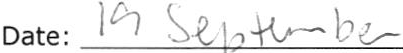 Date: 19 September